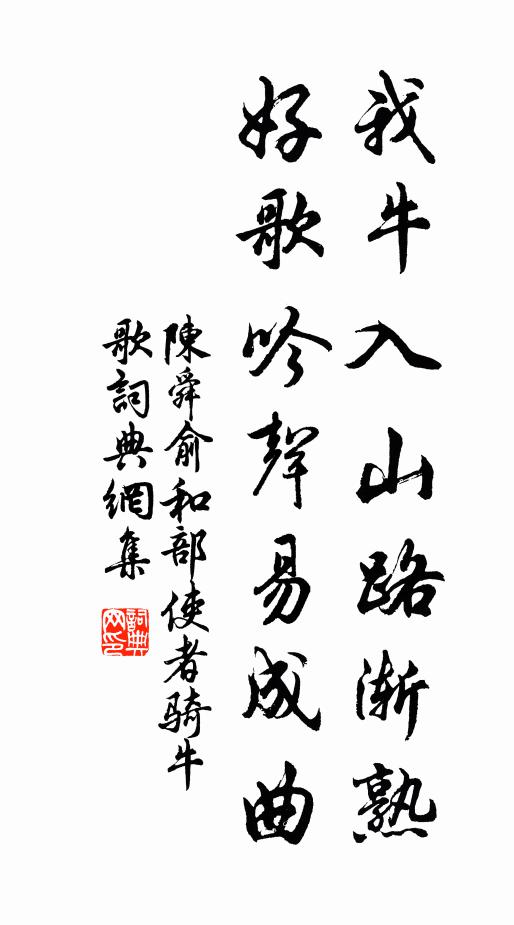 我牛入山路漸熟
好歌吟聲易成曲
陳舜俞和部使者騎牛
歌詞典網集
詞典
网印